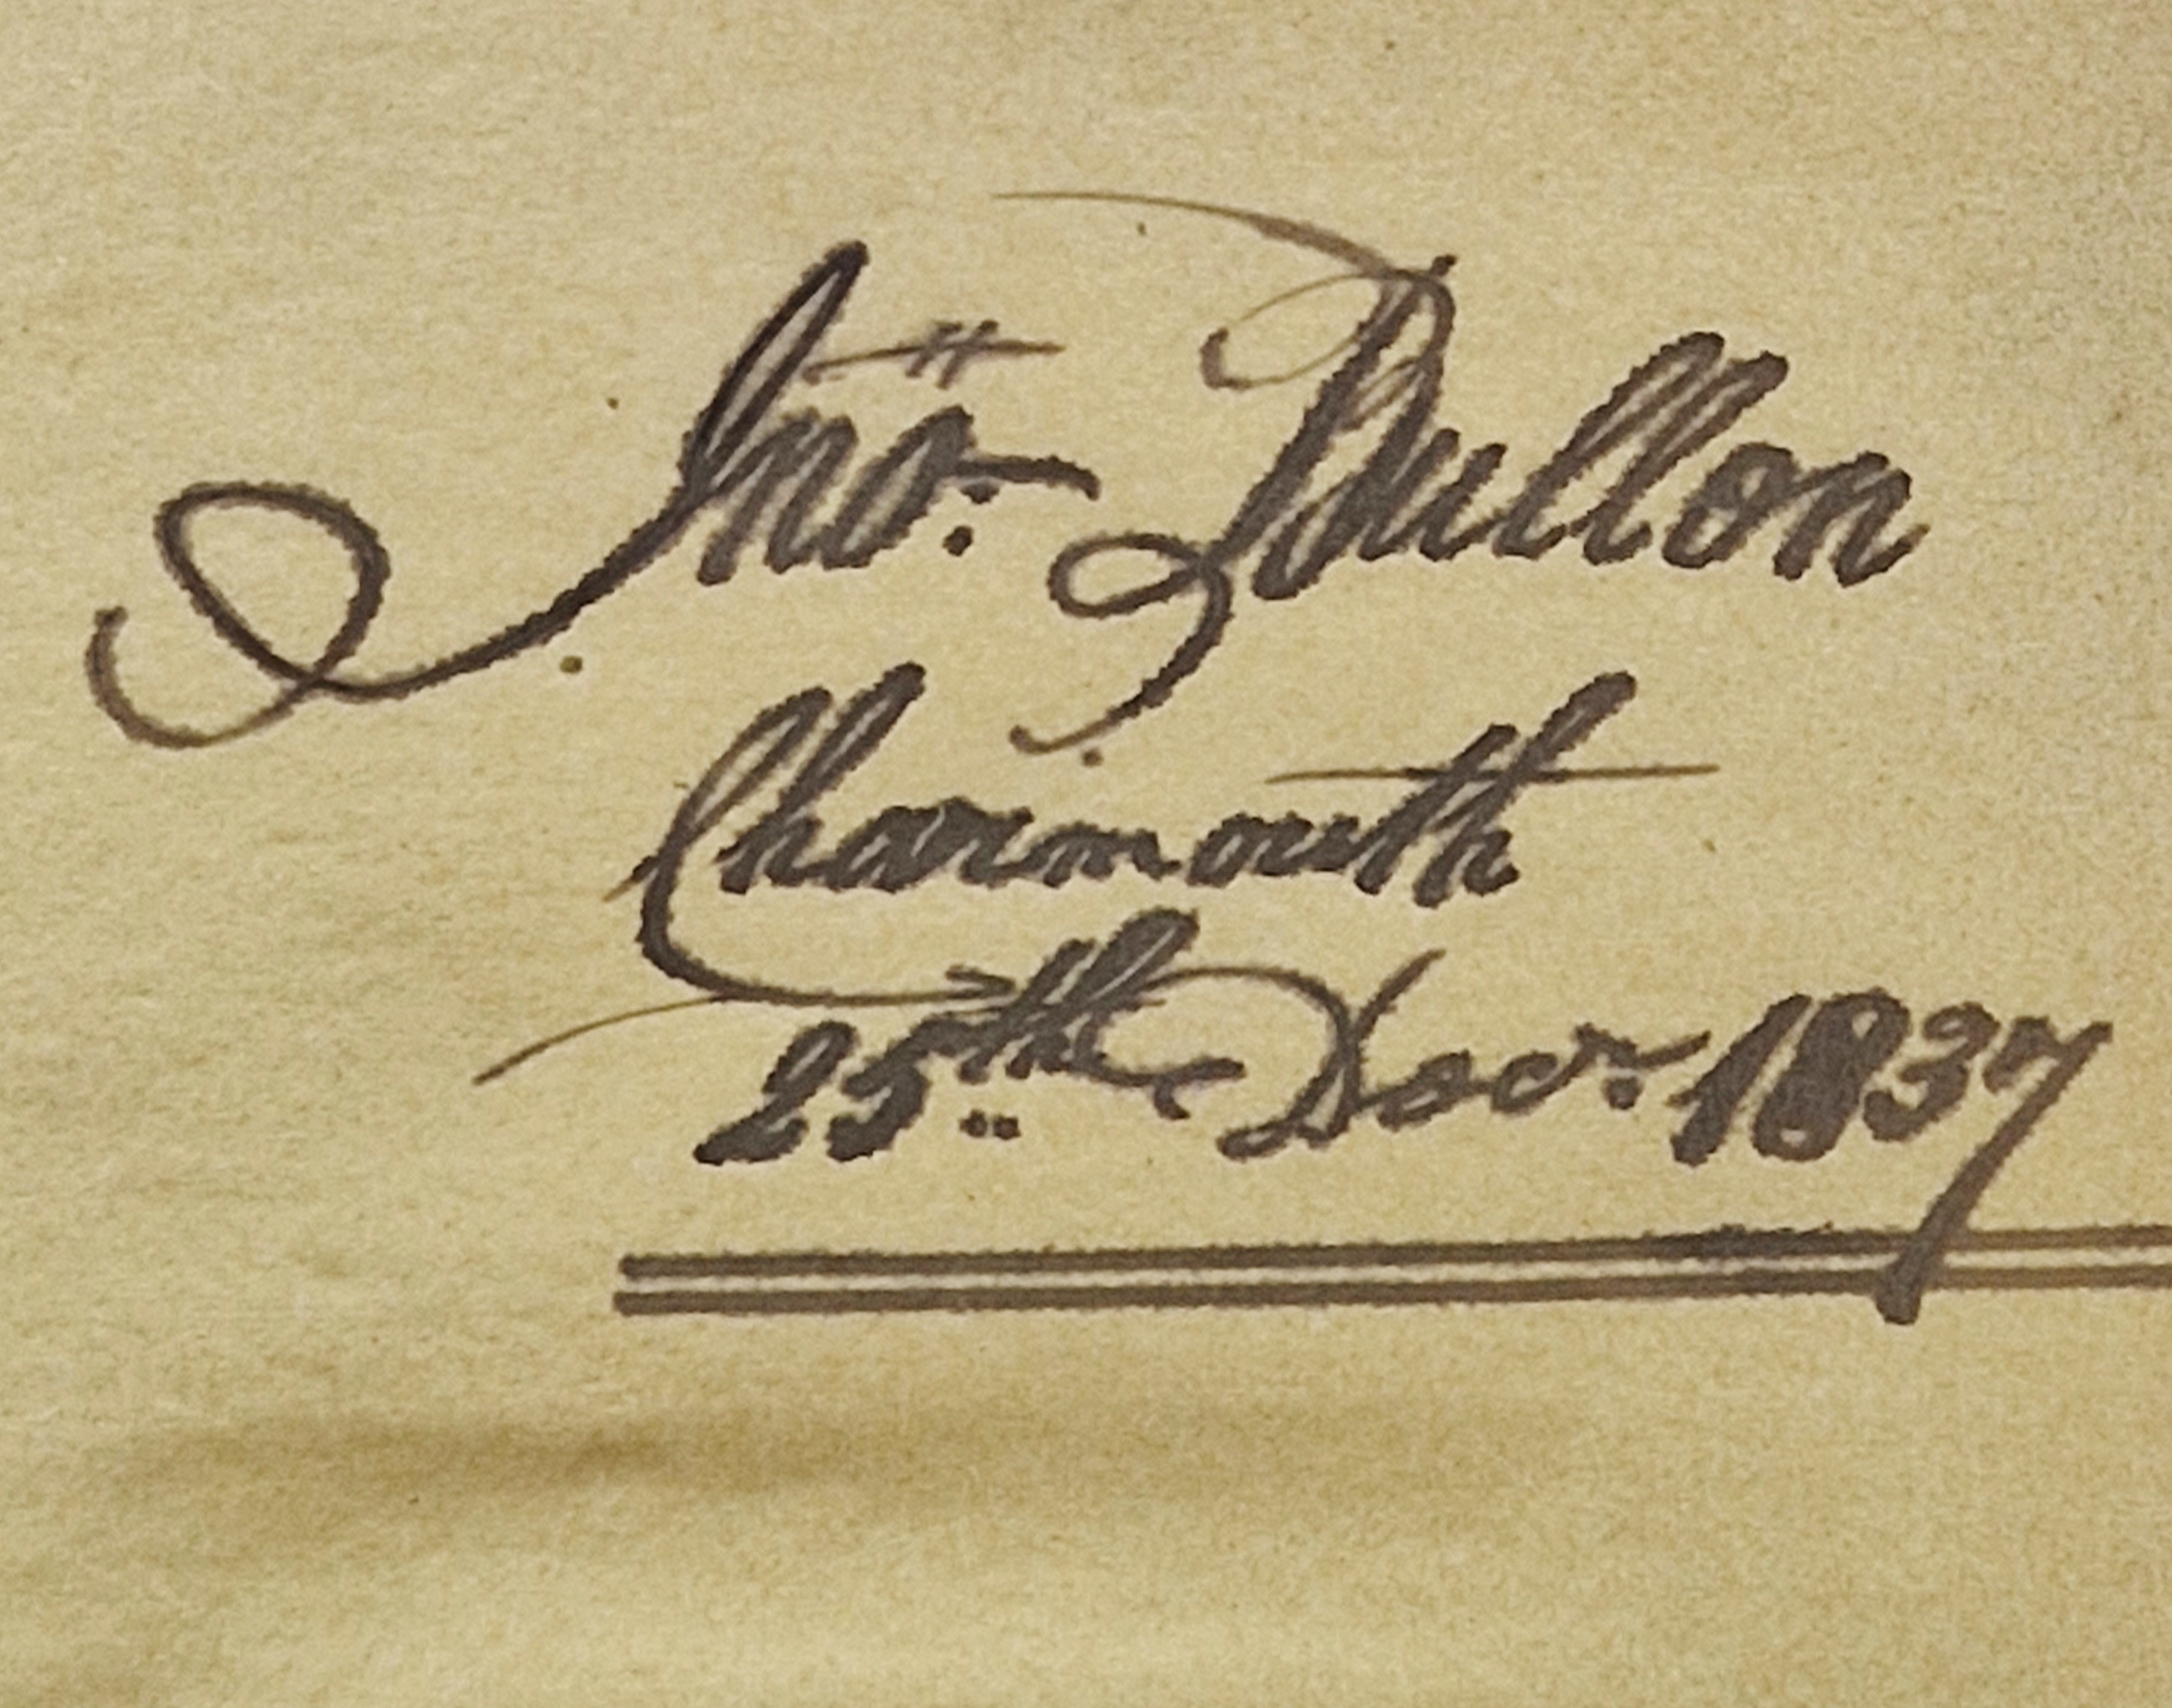 Jno. Bullon
Charmouth
25th Decr. 1837